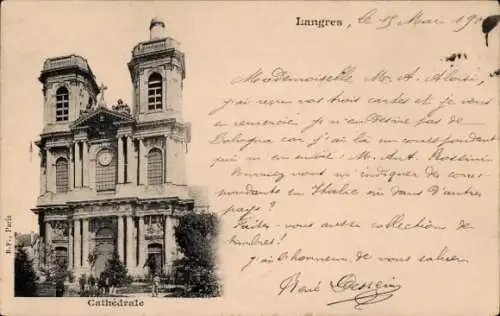 Langres, le 15 Mai 190
Mademoiselle M. A. Aloisi,
j'ai reçu vos trois cartes et je vous
en remercie, mais je n'en désire pas de
Bologna car j'ai là un correspondant
qui m'en envoie: M. Ant. Rossini
Pourriez vous m'indiquer des corres-
pondants en Italie ou dans d'autres
pays?
Faites-vous aussi collection de
timbres?
J'ai l'honneur de vous saluer
René Dessein
Cathédrale
B.F., Paris